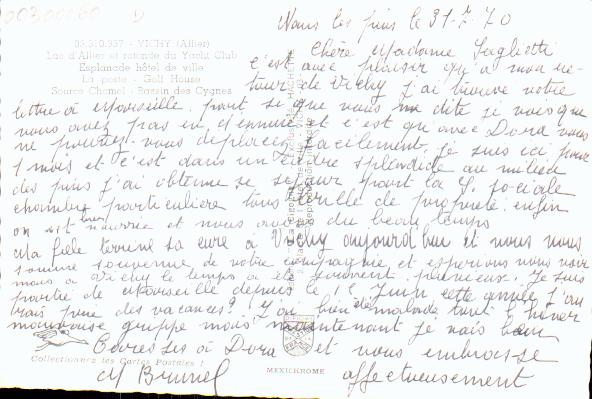 00300060 D
Nans les pins le 31-7-70
03.310.337 - VICHY (Allier)
Lac d'Allier et rotonde du Yacht Club
Esplanade hôtel de ville
La poste - Golf House
Source Chomel - Bassin des Cygnes
Chère Madame
c'est avec plaisir qu'a mon re-
tour de Vichy j'ai trouvé votre
lettre à Marseille. par se que vous me dite je vois que
vous avez pas eu d'ennuis et c'est qu'avec Dora vous
ne pouvez vous déplacez facilement. je suis ici pour
1 mois et c'est dans un cadre splendide au milieu
des pins j'ai obtenue se séjour par la S. sociale
chambre particulière tous brille de propreté enfin
on est bien nourrie et nous avons du beau temps
Ma fille termine sa cure à Vichy aujourd'hui et nous nous
somme souvenue de votre compagnie et espérons vous voir
mais à Vichy le temps a été souvent pluvieux. Je suis
partie de Marseille depuis le 1er Juin cette année j'au
rais prie des vacances! J'ai bien été malade tout l'hiver
mauvaise grippe mais maintenant je vais bien
Caresses à Dora et vous embrasse
M Brunel affectueusement
Collectionnez les Cartes Postales !
MEXICHROME